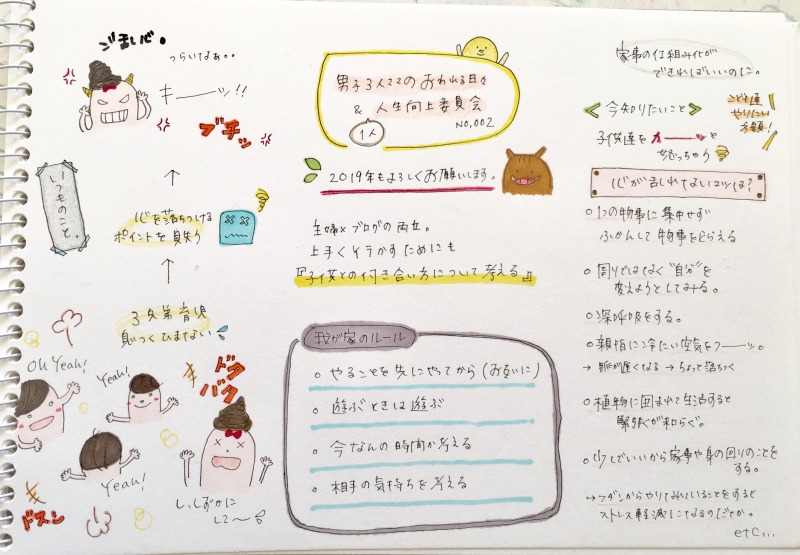 ごまい心。
つらいなぁ。。
キーーッ!!
ブチッ
いつものこと。
心を落ちつける
ポイントを見失う
3兄弟育児
息つくひまない
Oh Yeah!
Yeah!
ドタ
バタ
Yeah!
ドスン
し、しずかに
して〜
男子3人ママのおわれる日々
& 人生向上委員会
1人
NO,002
2019年もよろしくお願いします。
主婦×ブログの両立。
上手くイライラかすためにも
『子供との付き合い方について考える』
我が家のルール
やることを先にやってから(お互いに)
遊ぶときは遊ぶ
今なんの時間か考える
相手の気持ちを考える
家事の仕組み化が
できればいいのに。
<今知りたいこと>
こども達
やりたい
放題!
子供達をカーーッと
なっちゃう
心が乱れてないコツは?
1つの物事に集中せず
ふかんして物事をとらえる
周りではなく"自分"を
変えようとしてみる。
深呼吸をする。
親指に冷たい空気をフーーッ。
→脈が遅くなる→ちょっと落ちつく
植物に囲まれて生活すると
緊張が和らぐ。
少しでいいから家事や身の回りのことを
する。
→フダンからやりなれていることをすると
ストレス軽減になるのだとか。
etc...